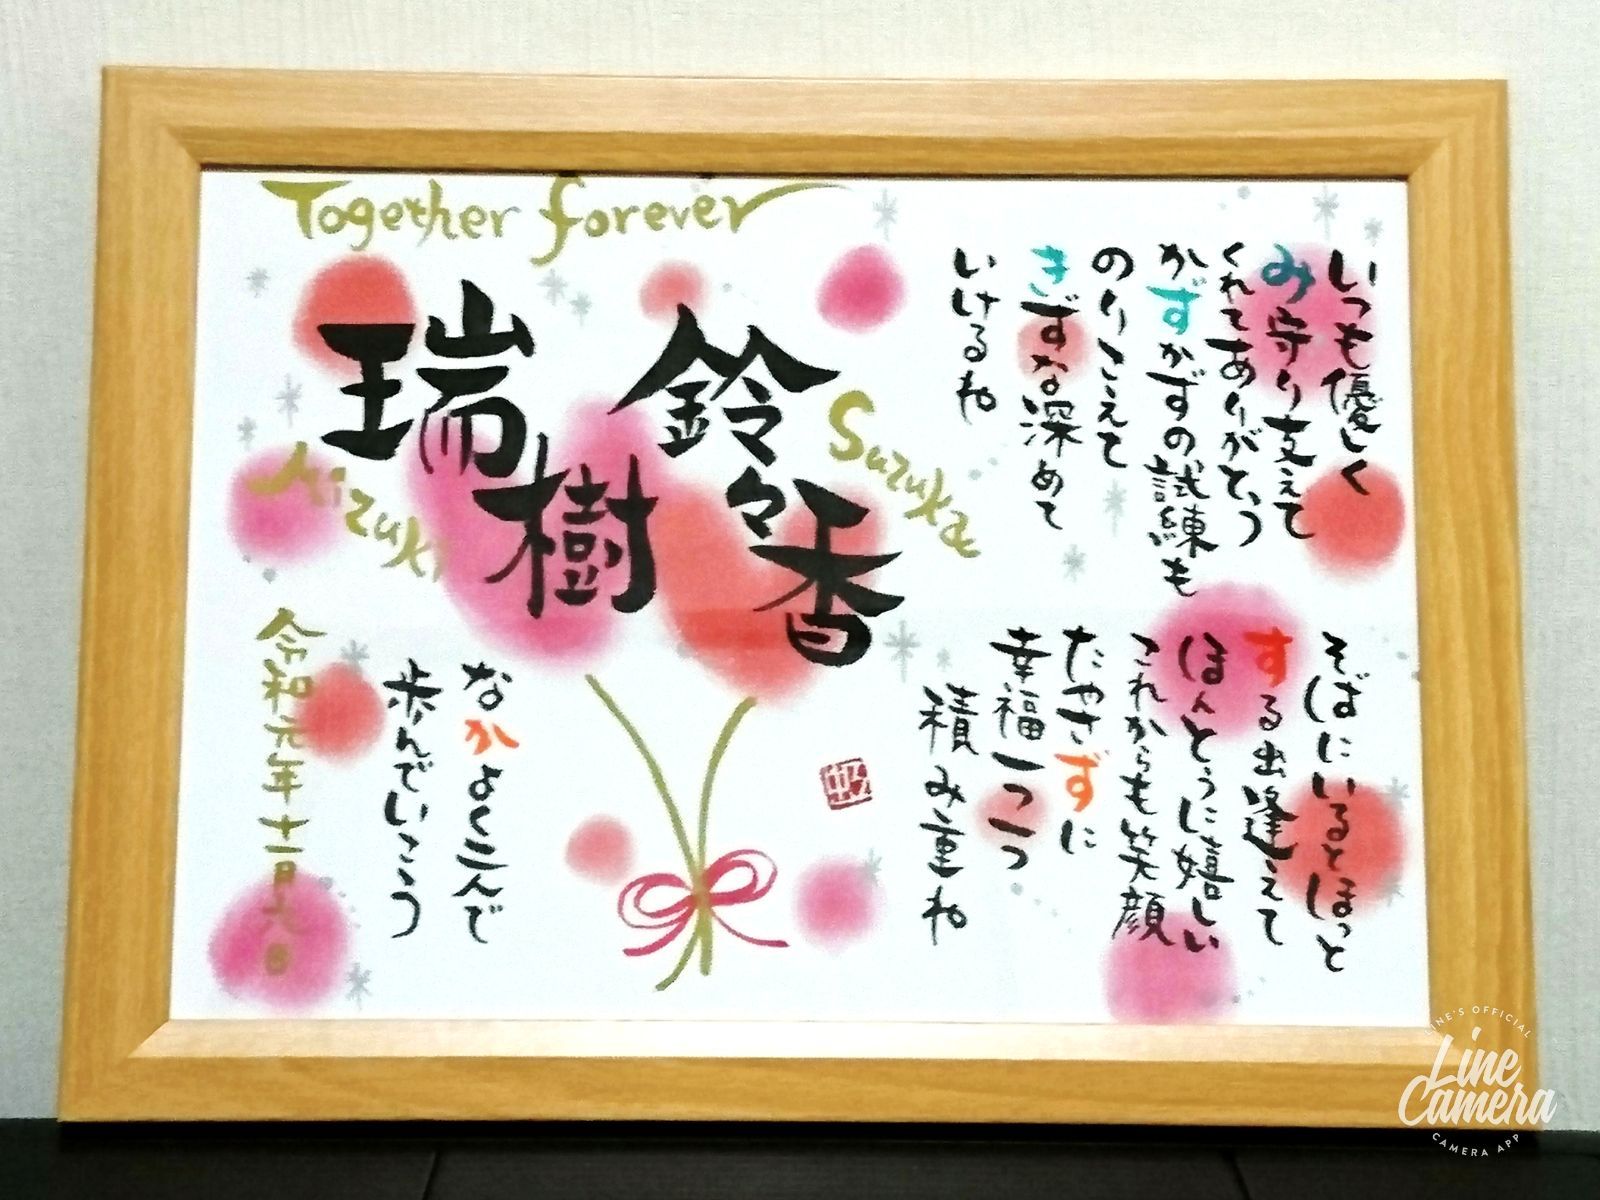 Together forever
瑞樹
Mizuki
鈴々香
Suzuka
いつも優しく
み守り支えて
くれてありがとう
かずかずの試練も
のりこえて
きずな深めて
いけるね
そばにいるとほっと
する出逢えて
ほんとうに嬉しい
これからも笑顔
たやさずに
幸福一つ一つ
積み重ね
なかよく二人で
歩んでいこう
令和元年十一月六日
LINE'S OFFICIAL
Line Camera
CAMERA APP